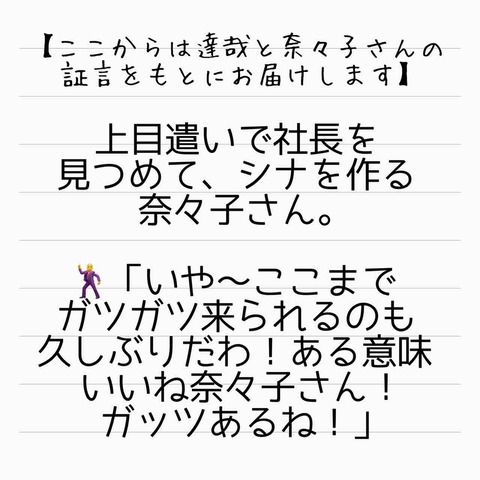 【ここからは達哉と奈々子さんの
証言をもとにお届けします】
上目遣いで社長を
見つめて、シナを作る
奈々子さん。
🕺「いや〜ここまで
ガツガツ来られるのも
久しぶりだわ！ある意味
いいね奈々子さん！
ガッツあるね！」